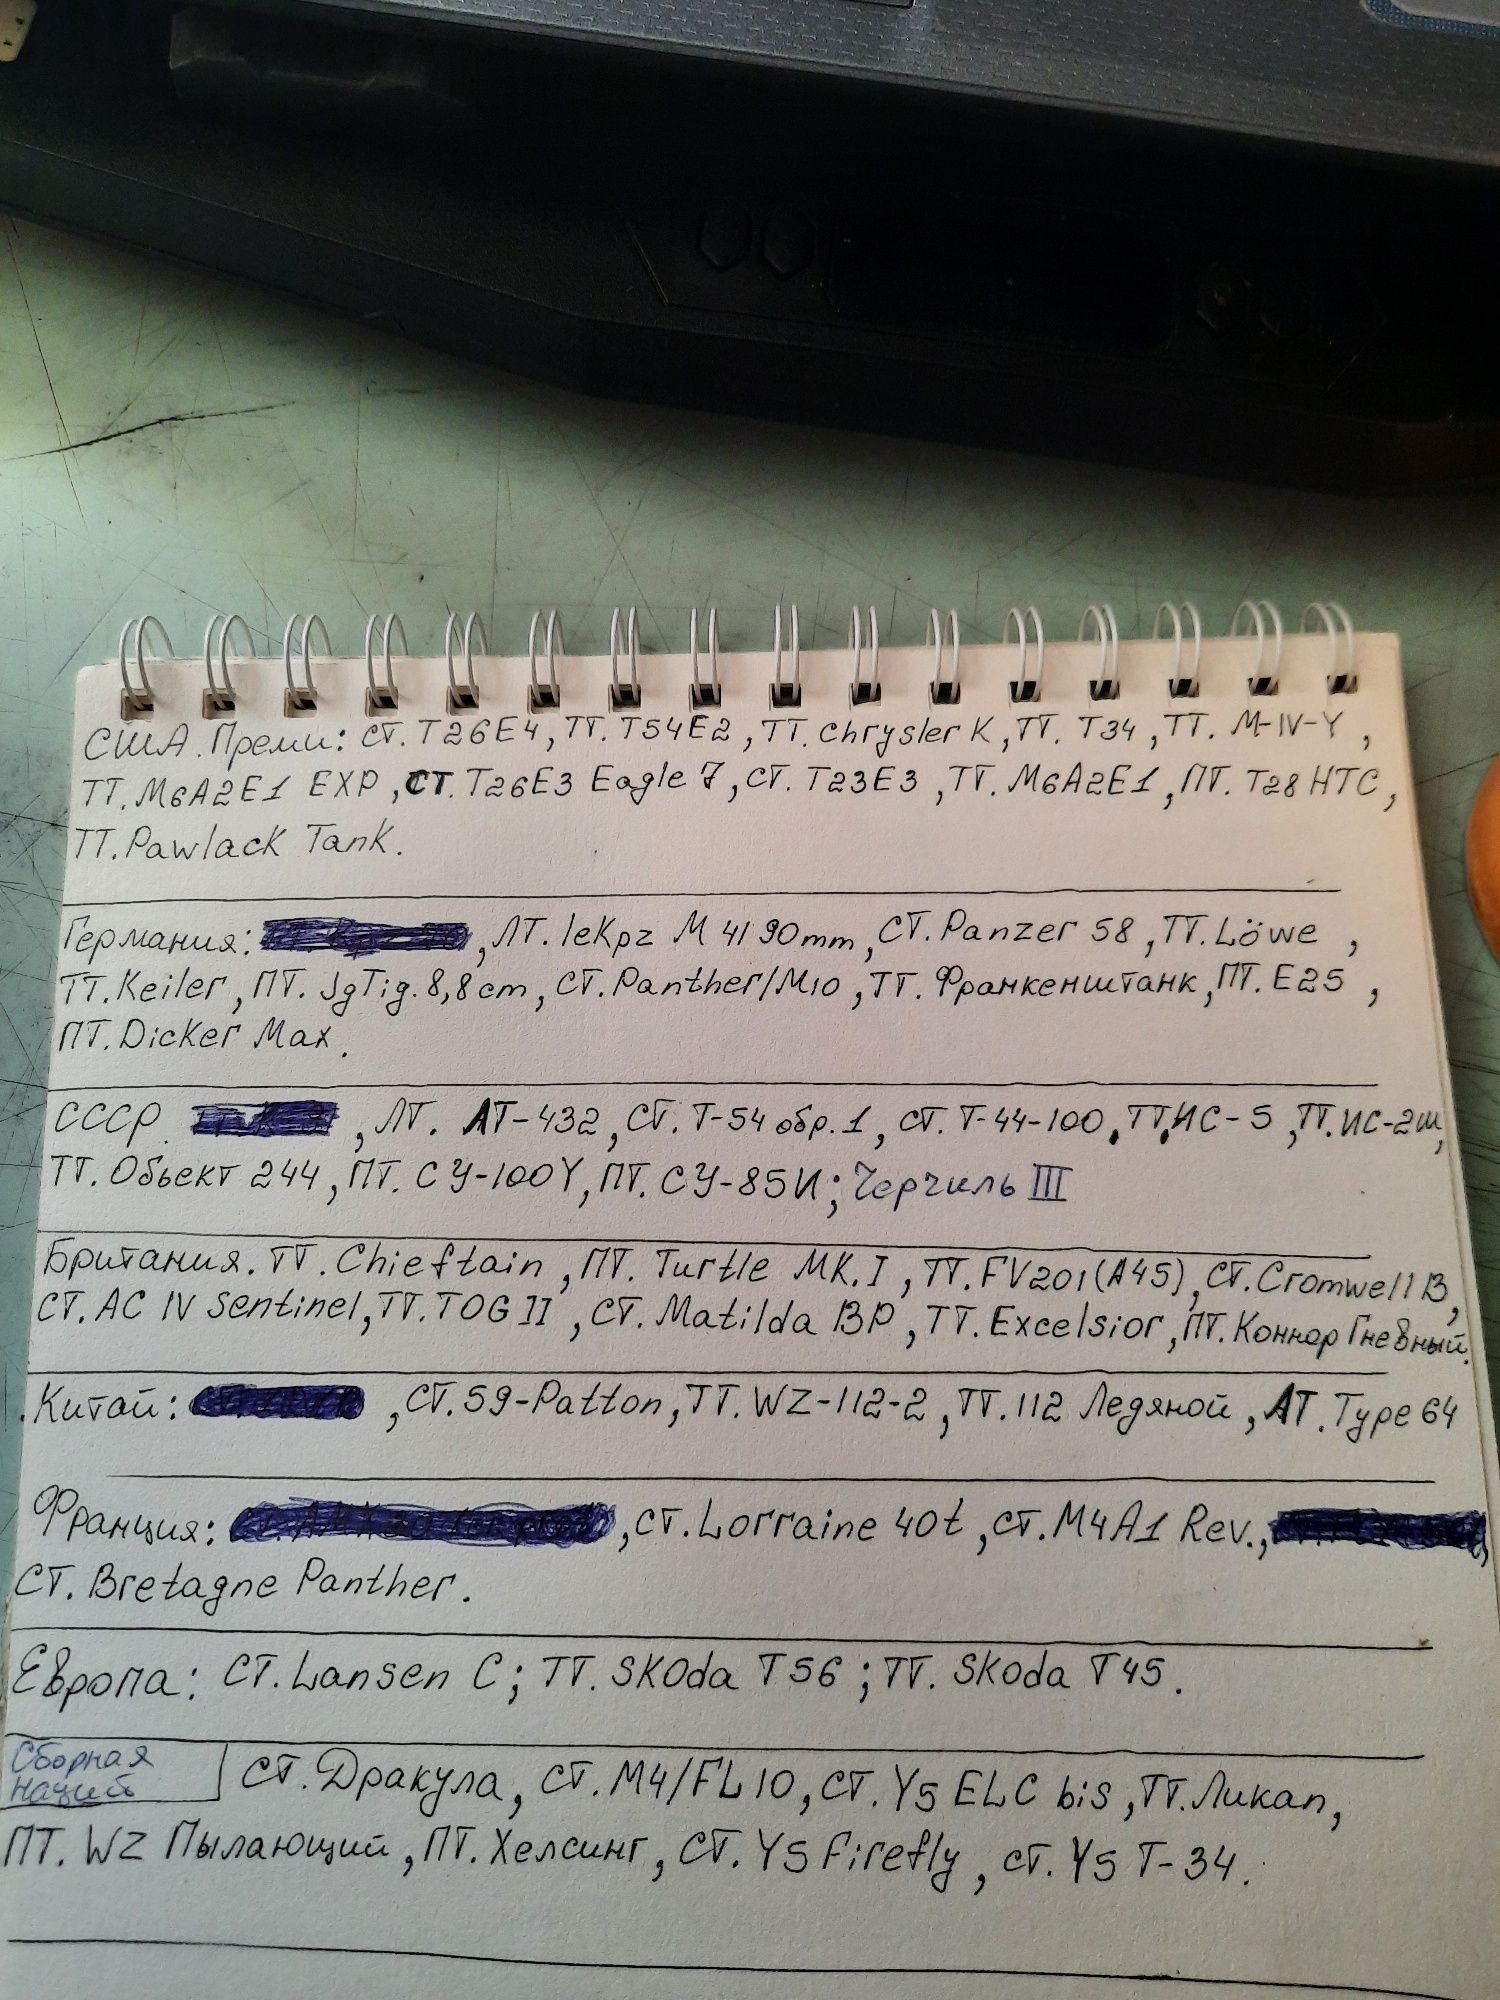 США. Преми: СТ. T26E4, ТТ. T54E2, ТТ. Chrysler K, ТТ. T34, ТТ. M-IV-Y,
ТТ. M6A2E1 EXP, СТ. T26E3 Eagle 7, СТ. T23E3, ТТ. M6A2E1, ПТ. T28 HTC,
ТТ. Pawlack Tank.
Германия: , ЛТ. leKpz M 41 90mm, СТ. Panzer 58, ТТ. Löwe,
ТТ. Keiler, ПТ. JgTig. 8,8 cm, СТ. Panther/M10, ТТ. Франкенштанк, ПТ. E25,
ПТ. Dicker Max.
СССР. , ЛТ. ЛТ-432, СТ. Т-54 обр. 1, СТ. Т-44-100, ТТ. ИС-5, ТТ. ИС-2ш,
ТТ. Обьект 244, ПТ. СУ-100Y, ПТ. СУ-85И; Черчиль III
Британия. ТТ. Chieftain, ПТ. Turtle MK. I, ТТ. FV201 (A45), СТ. Cromwell B,
СТ. AC IV Sentinel, ТТ. TOG II, СТ. Matilda BP, ТТ. Excelsior, ПТ. Коннор Гневный.
Китай: , СТ. 59-Patton, ТТ. WZ-112-2, ТТ. 112 Ледяной, ЛТ. Type 64
Франция: , СТ. Lorraine 40t, СТ. M4A1 Rev., ,
СТ. Bretagne Panther.
Европа: СТ. Lansen C; ТТ. Skoda T56; ТТ. Skoda T45.
Сборная
наций
СТ. Дракула, СТ. M4/FL10, СТ. Y5 ELC bis, ТТ. Ликан,
ПТ. WZ Пылающий, ПТ. Хелсинг, СТ. Y5 Firefly, СТ. Y5 T-34.